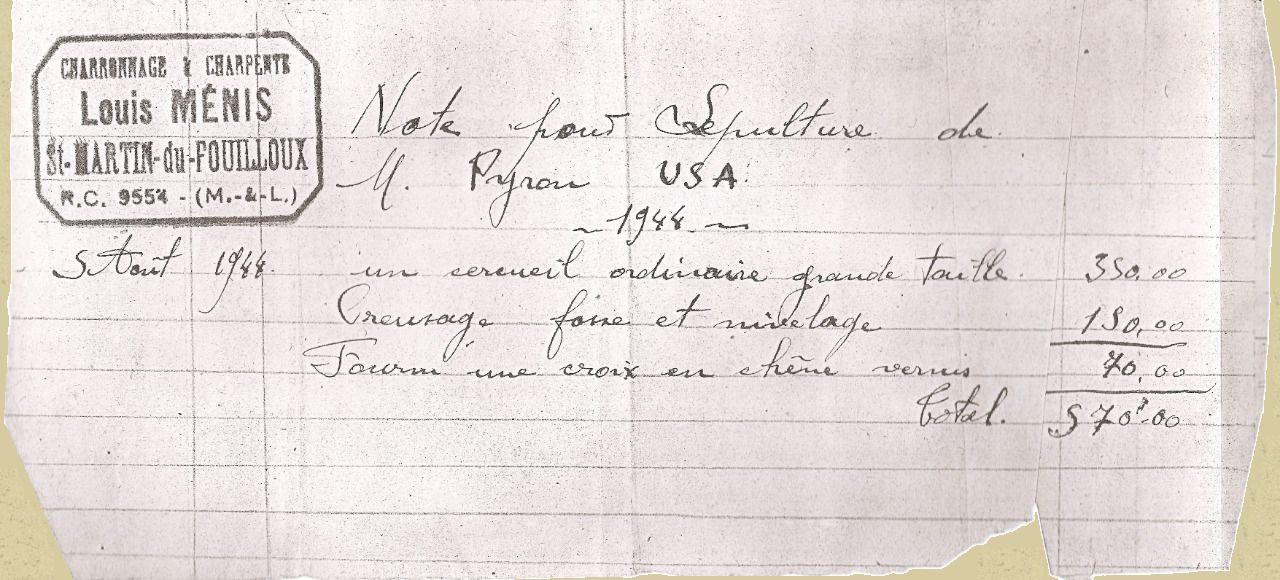 CHARRONNAGE & CHARPENTE
Louis MÉNIS
St-MARTIN-du-FOUILLOUX
R.C. 9554 - (M.-&-L.)
Note pour Sépulture de
M. Pyron USA
~ 1944 ~
5 Aout 1944 un cercueil ordinaire grande taille. 350,00
Creusage fosse et nivelage 150,00
Fourni une croix en chêne vernis 70,00
Total. 570f.00